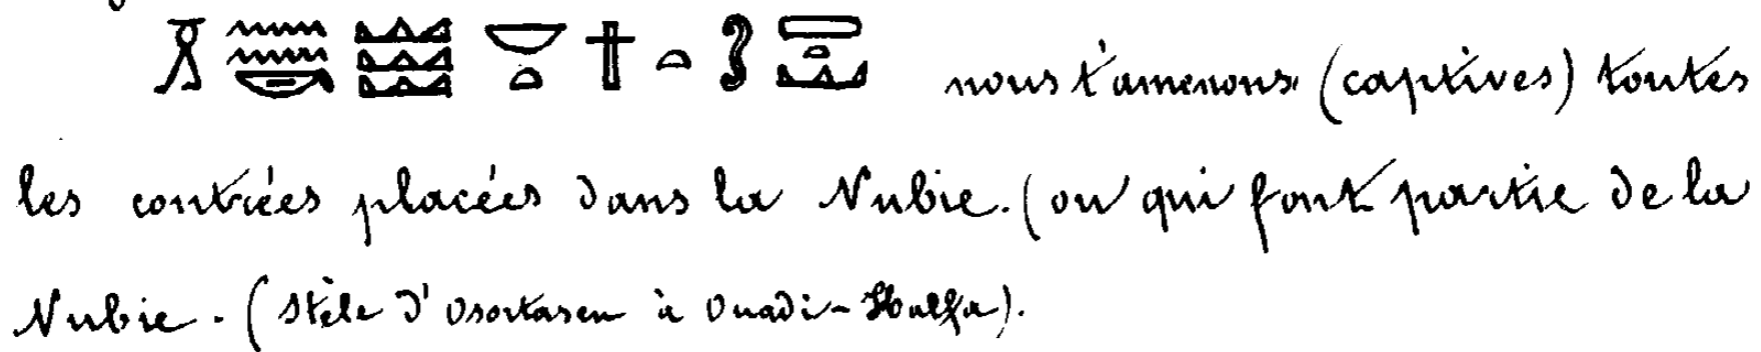 nous t'amenons (captives) toutes
les contrées placées dans la Nubie. (ou qui font partie de la
Nubie. (Stèle d'Osortasen à Ouadi-Halfa).